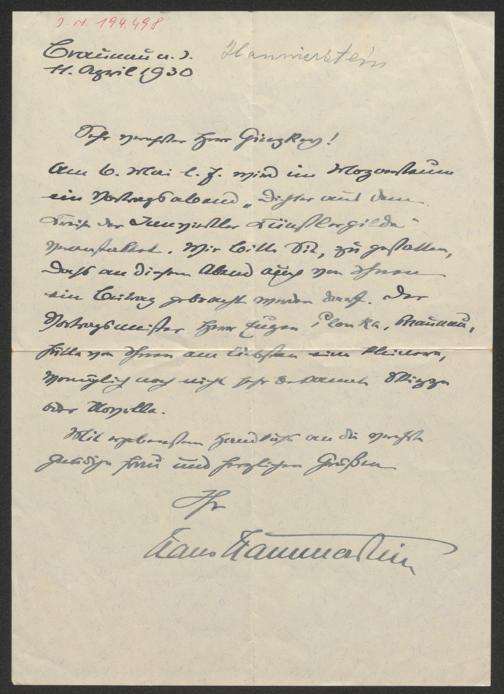 J. N. 194.498
Hammerstein
Braunau a. I.
11. April 1930
Sehr verehrter Herr Ginzkey!
Am 6. Mai l. J. wird im Mozarteum
ein Vortragsabend „Dichter aus dem
Kreise der Innviertler Künstlergilde“
veranstaltet. Wir bitten Sie, zu gestatten,
daß an diesem Abend auch von Ihnen
ein Beitrag gebracht werden darf. Der
Vortragsmeister Herr Eugen Plonka, Braunau,
hätte von Ihnen am liebsten eine kleinere,
womöglich noch nicht sehr bekannte Skizze
oder Novelle.
Mit ergebenstem Handkuß an die verehrte
gnädige Frau und herzlichen Grüßen
Ihr
Hans Hammerstein